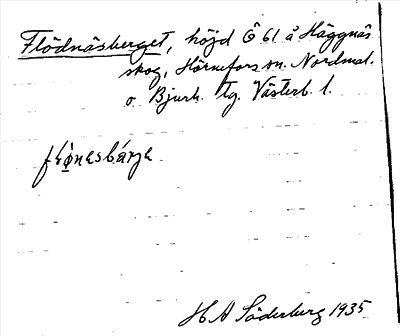 Flödnäsberget, höjd Ö 61 å Häggnäs
skog, Hörnefors sn. Nordmal.
o Bjurh. tg. Västerb. l.
flønesbárje
H A Söderberg 1935